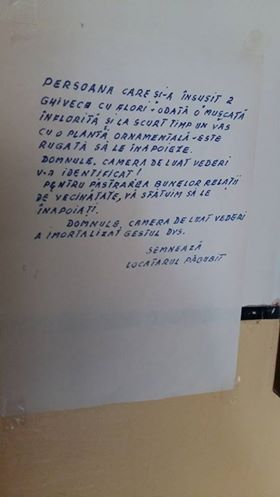 PERSOANA CARE ȘI-A ÎNSUȘIT 2
GHIVECE CU FLORI : ODATĂ O MUȘCATĂ
ÎNFLORITĂ ȘI LA SCURT TIMP UN VAS
CU O PLANTĂ ORNAMENTALĂ - ESTE
RUGATĂ SĂ LE ÎNAPOIEZE.
DOMNULE, CAMERA DE LUAT VEDERI
V-A IDENTIFICAT!
PENTRU PĂSTRAREA BUNELOR RELAȚII
DE VECINĂTATE, VĂ SFĂTUIM SĂ LE
ÎNAPOIAȚI.
DOMNULE, CAMERA DE LUAT VEDERI
A IMORTALIZAT GESTUL DVS.
SEMNEAZĂ
LOCATARUL PĂGUBIT